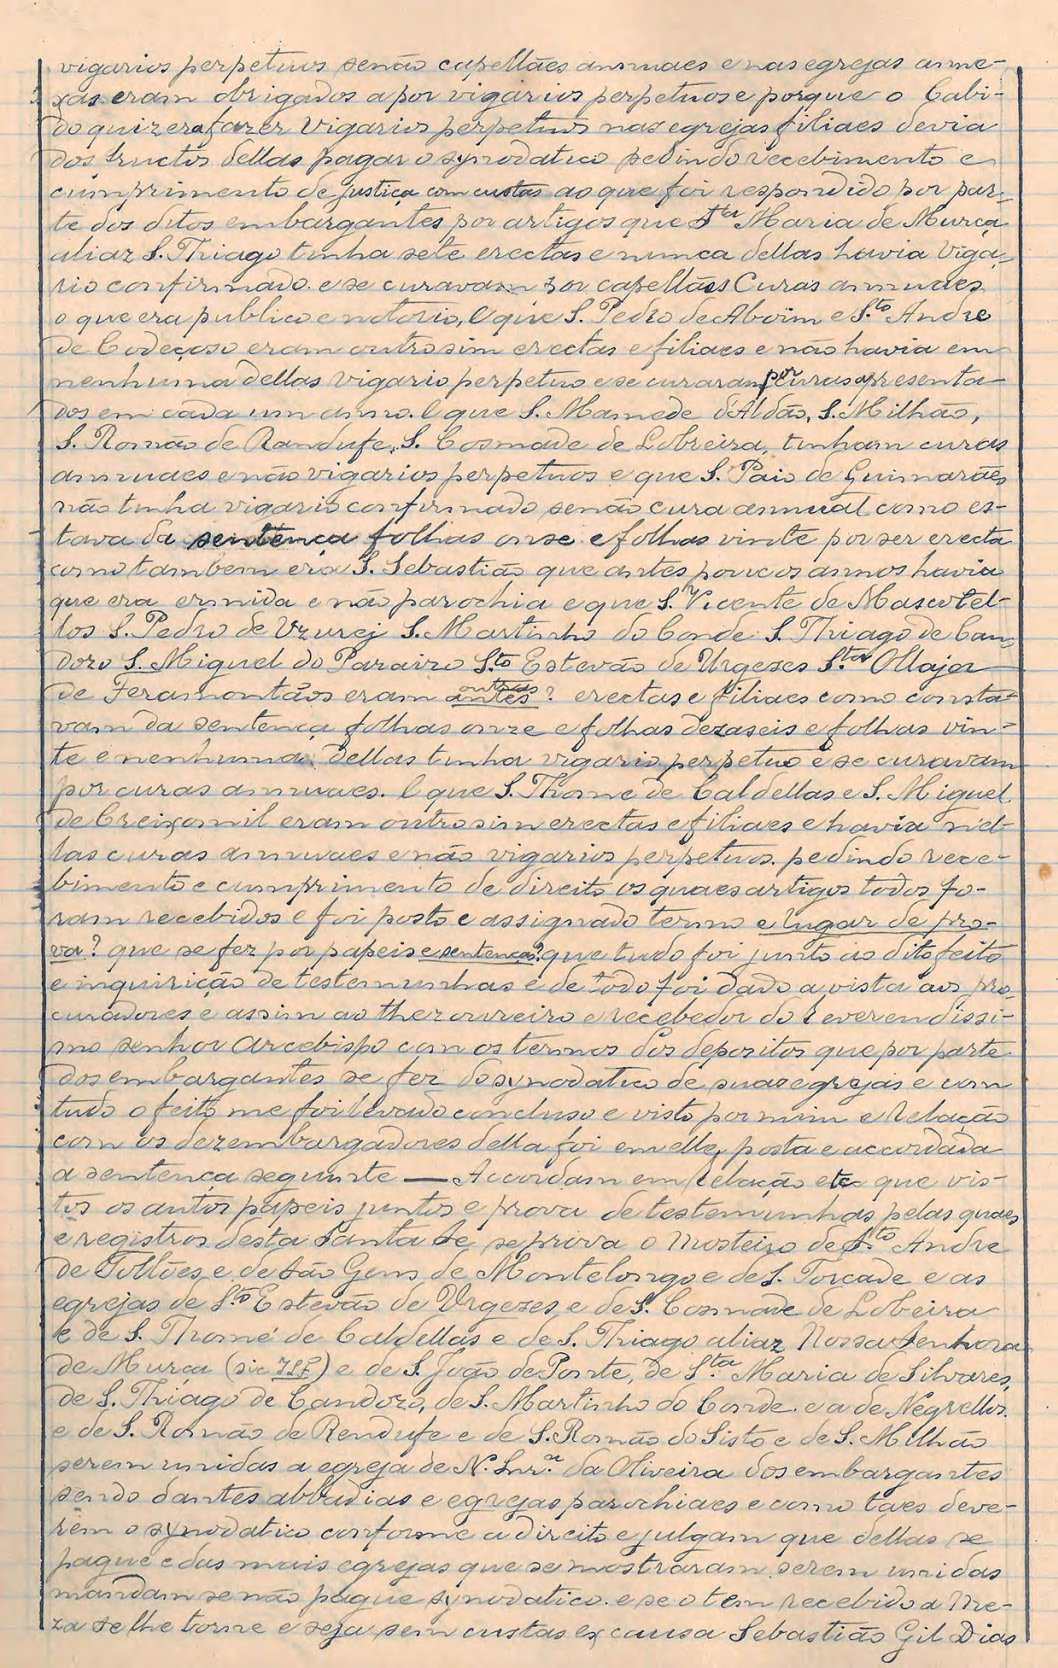 vigarios perpetuos senão capellães annuaes e nas egrejas anne-
xas eram obrigados a por vigarios perpetuos e porque o Cabi-
do quizera fazer Vigarios perpetuos nas egrejas filiaes devia
dos fructos dellas pagar o synodatico pedindo recebimento e
cumprimento de justiça com custas ao que foi respondido por par-
te dos ditos embargantes por artigos que Sta Maria de Murça
aliaz S. Thiago tinha sete erectas e nunca dellas havia Viga-
rio confirmado e se curavam por capellães Curas annuaes
o que era publico e notorio, E que S. Pedro de Aboim e Sto André
de Codeçoso eram outrosim erectas e filiaes e não havia em
nenhuma dellas vigario perpetuo e se curaram por curas apresenta-
dos em cada um anno. E que S. Mamede d'Aldão, S. Milhão,
S. Romão de Randufe, S. Cosmade de Lobreira, tinham curas
annuaes e não vigarios perpetuos e que S. Paio de Guimarães
não tinha vigario confirmado senão cura annual como es-
tava da sentença folhas onse e folhas vinte por ser erecta
como tambem era S. Sebastião que antes poucos annos havia
que era ermida e não parochia e que S. Vicente de Mascotel-
los S. Pedro de Uzurej S. Martinho do Conde S. Thiago de Can-
dozo S. Miguel do Paraizo Sto Estevão de Urgeses Sta Ollaja
de Feramontãos eram outras antes? erectas e filiaes como consta-
vam da sentença folhas onze e folhas dezaseis e folhas vin-
te e nenhuma dellas tinha vigario perpetuo e se curavam
por curas annuaes. E que S. Thomé de Caldellas e S. Miguel
de Creixomil eram outrosim erectas e filiaes e havia n'el-
las curas annuaes e não vigarios perpetuos pedindo rece-
bimento e cumprimento de direito os quaes artigos todos fo-
ram recebidos e foi posto e assignado termo e lugar de pro-
va? que se fez por papeis e sentenças? que tudo foi junto ao dito feito
e inquirição de testemunhas e de todo foi dado a vista aos pro-
curadores e assim ao thezoureiro e recebedor do reverendissi-
mo senhor Arcebispo com os termos dos depozitos que por parte
dos embargantes se fez do synodatico de suas egrejas e com
tudo o feito me foi levado concluso e visto por mim e Relação
com os dezembargadores della foi em elle posta e accordada
a sentença seguinte — Accordam em Relação etc que vis-
tos os autos papeis juntos e prova de testemunhas pelas quaes
e registros desta Santa Se se prova o Mosteiro de Sto André
de Tollões e de São Gens de Montelongo e de S. Torcade e as
egrejas de Sto Estevão de Urgezes e de S. Cosmade de Lobeira
e de S. Thomé de Caldellas e de S. Thiago aliaz Nossa Senhora
de Murça (sic ) e de S. João de Ponte, de Sta Maria de Silvares,
de S. Thiago de Candozo, de S. Martinho do Conde e a de Negrellos
e de S. Romão de Rendufe e de S. Romão do Sisto e de S. Milhão
serem unidas a egreja de N. Snr.a da Oliveira dos embargantes
sendo dantes abbadias e egrejas parochiaes e como taes deve-
rem o synodatico conforme a direito e julgam que dellas se
pague e das mais egrejas que se mostraram serem unidas
mandam se não pague synodatico e se o tem recebido a Me-
za se lhe torne e seja sem custas ex causa Sebastião Gil Dias